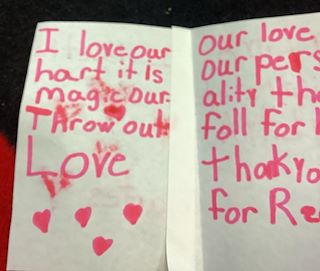 I love our
hart it is
magic our
Throw out
Love
Our love
Our pers
ality tha
foll for
thakyo
for Re